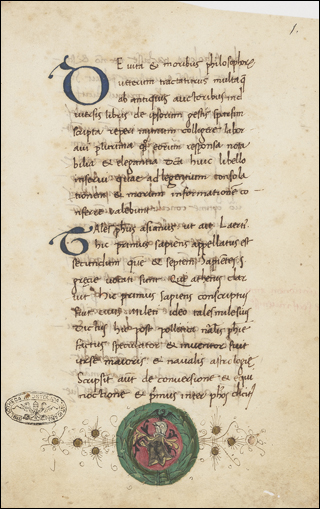 1.
DE uita & moribus philosophor
ueterum tractaturus multa q
ab antiquis auctoribus in di
uersis libris de ipsorum gestis sparsim
scripta reperi in unum colligere labor
aui plurima q eorum responsa nota
bilia & elegantia huic libello
inserui quae ad legentium consola
tionem & morum informatione co
nferre ualebunt
TAles phus asianus ut ait Laerti
hic primus sapiens appellatus est
secundum que & septem sapientes
grecie uocati sunt Qui athenis clar
uit hic primus sapiens conscriptus
fuit ciuis Milesi ideo tales milesius
dictus hic post naturalis phie
factus speculator & inuentor fuit
urse maioris & naualis astrologie
Scripsit aut de conuersione & equi
noctione & primus inter phos